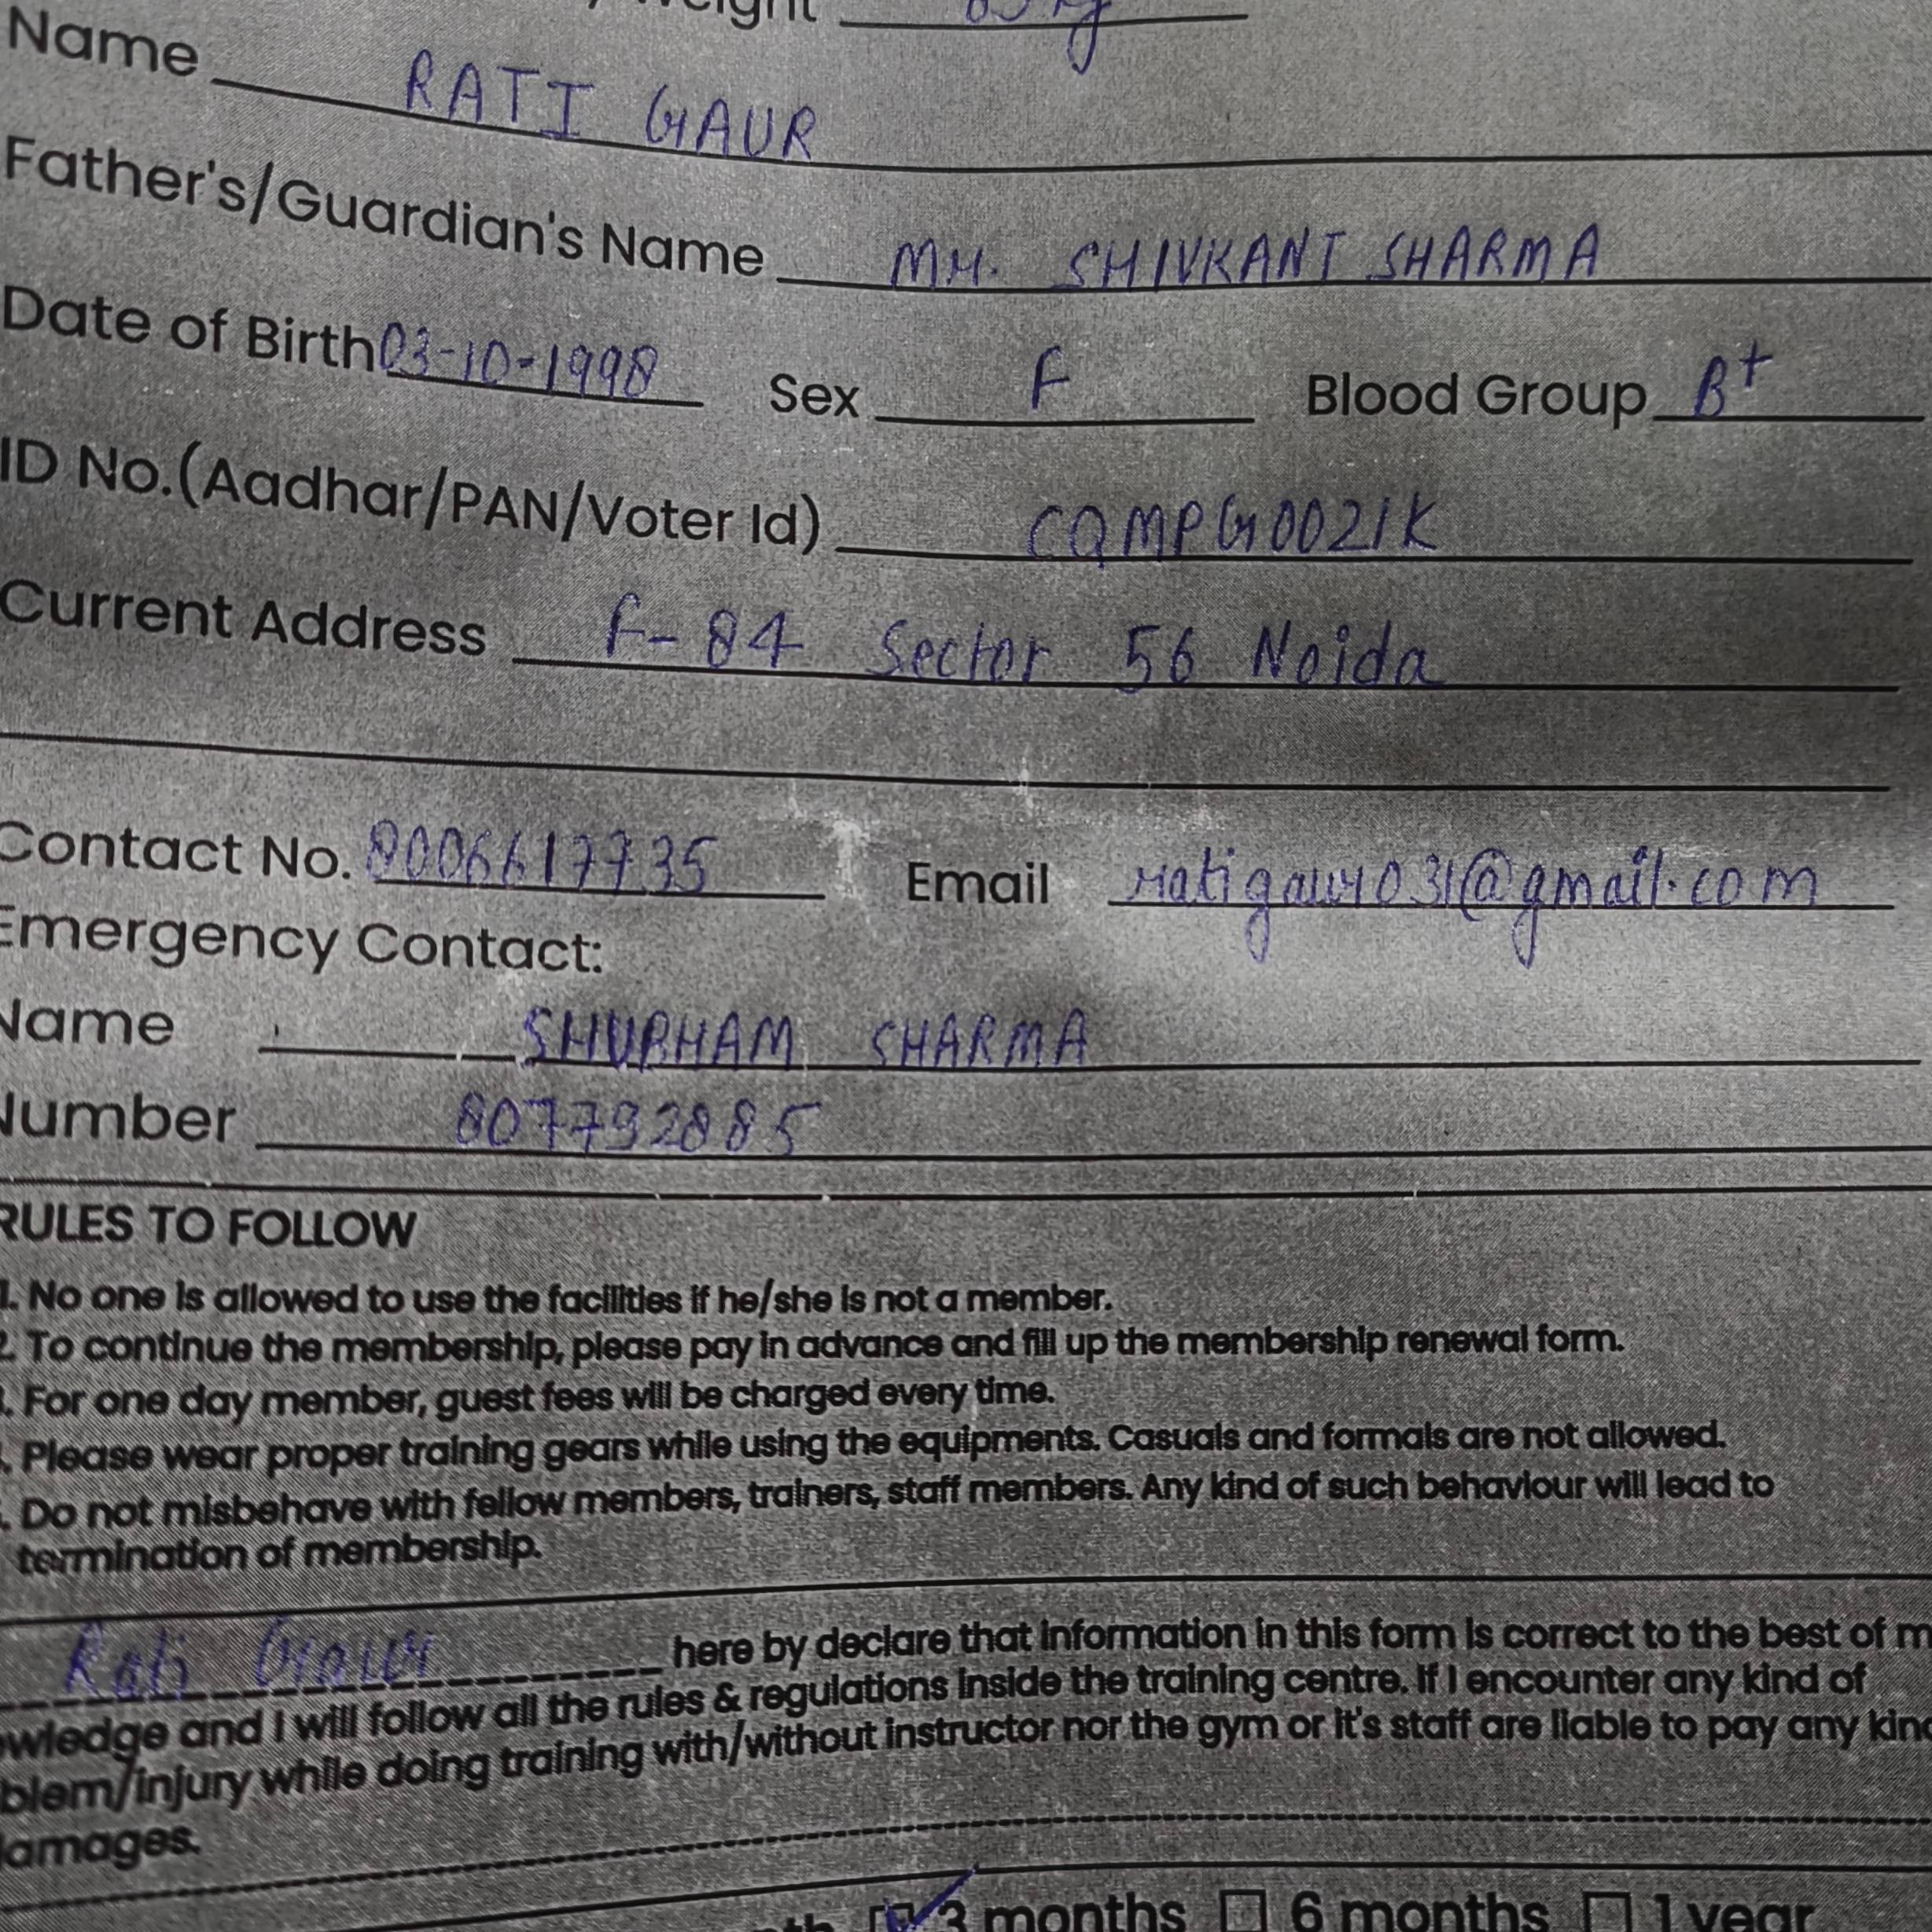 Weight
Name RATI GAUR
Father's/Guardian's Name Mr. SHIVKANT SHARMA
Date of Birth 03-10-1998 Sex F Blood Group B+
ID No.(Aadhar/PAN/Voter Id) CQMPG0021K
Current Address F-84 Sector 56 Noida
Contact No. 8006617735 Email ratigaur1031@gmail.com
Emergency Contact:
Name SHUBHAM SHARMA
Number 807792885
RULES TO FOLLOW
1. No one is allowed to use the facilities if he/she is not a member.
2. To continue the membership, please pay in advance and fill up the membership renewal form.
. For one day member, guest fees will be charged every time.
. Please wear proper training gears while using the equipments. Casuals and formals are not allowed.
. Do not misbehave with fellow members, trainers, staff members. Any kind of such behaviour will lead to
termination of membership.
Rati Gaur here by declare that information in this form is correct to the best of m
wledge and I will follow all the rules & regulations inside the training centre. If I encounter any kind of
blem/injury while doing training with/without instructor nor the gym or it's staff are liable to pay any kin
damages.
3 months 6 months 1 year